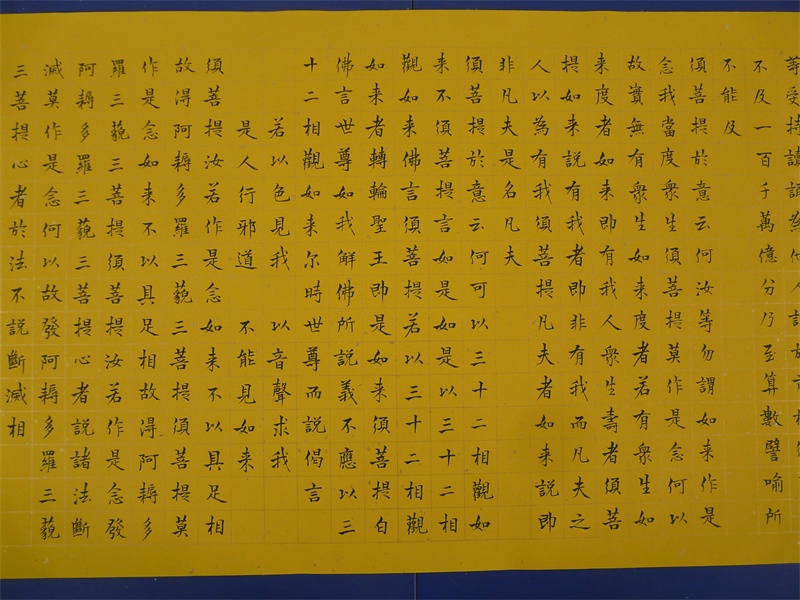 等受持讀誦為他人說於前福德
不及一百千萬億分乃至算數譬喻所
不能及
須菩提於意云何汝等勿謂如来作是
念我當度衆生須菩提莫作是念何以
故實無有衆生如来度者若有衆生如
来度者如来即有我人衆生壽者須菩
提如来說有我者即非有我而凡夫之
人以為有我須菩提凡夫者如来說即
非凡夫是名凡夫
須菩提於意云何可以三十二相觀如
来不須菩提言如是如是以三十二相
觀如来佛言須菩提若以三十二相觀
如来者轉輪聖王即是如来須菩提白
佛言世尊如我解佛所說義不應以三
十二相觀如来尔時世尊而說偈言
若以色見我 以音聲求我
是人行邪道 不能見如来
須菩提汝若作是念如来不以具足相
故得阿耨多羅三藐三菩提須菩提莫
作是念如来不以具足相故得阿耨多
羅三藐三菩提須菩提汝若作是念發
阿耨多羅三藐三菩提心者說諸法斷
滅莫作是念何以故發阿耨多羅三藐
三菩提心者於法不說斷滅相